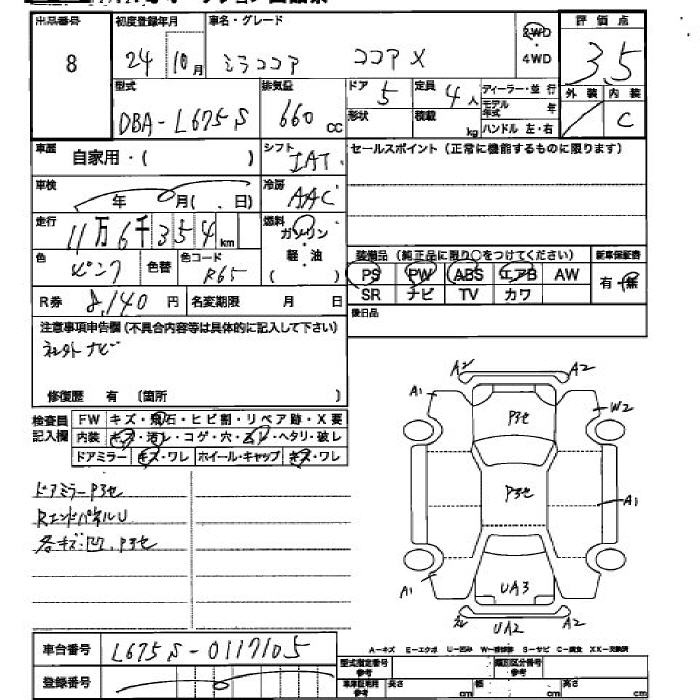 出品番号 初度登録年月 車名・グレード 評価点
8 24年 10月 ミラココア ココア X 2WD・4WD 3.5
型式 排気量 ドア 5 定員 4人 ディーラー・並行 外装 内装
DBA-L675S 660cc 形状 積載 kg モデル年式 年 ハンドル 左・右 C
車歴 自家用・( ) シフト IAT セールスポイント(正常に機能するものに限ります)
車検 年 月( . 日) 冷房 AAC
走行 11万6千354km 燃料 ガソリン・軽・油 ( )
色 ピンク 色替 色コード R65 装備品(純正品に限り○をつけてください) 新車保証書
PS PW ABS エアB AW 有・無
R券 8,140円 名変期限 月 日 SR ナビ TV カワ
注意事項申告欄(不具合内容等は具体的に記入して下さい) 後日品
社外ナビ
修復歴 有 〔箇所 〕
検査員記入欄 FW キズ・飛石・ヒビ割・リペア跡・X要
内装 キズ・汚レ・コゲ・穴・ヘタリ・破レ
ドアミラー キズ・ワレ ホイール・キャップ キズ・ワレ
A2 A2
A1 P3セ W2
P3セ A1
A1 UA3 A2
UA2
ドアミラーP3セ
RエンドパネルU
各キズ凹、P3セ
車台番号 L675S-0117105
A-キズ E-エクボ U-凹み W-補修跡 S-サビ C-腐食 XX-交換済
登録番号 型式指定番号 参考 類別区分番号 参考
車庫証明用 参考 長さ cm 幅 cm 高さ cm